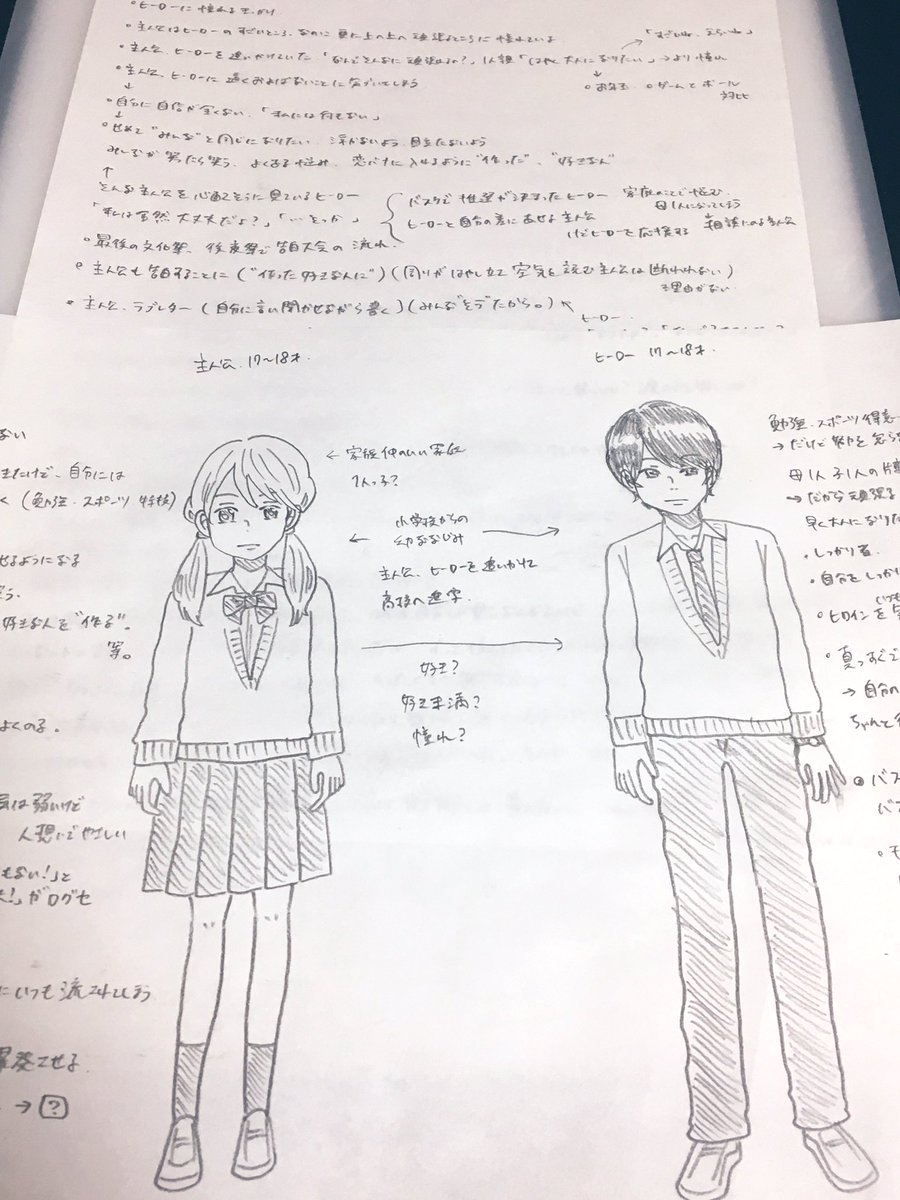 ・ヒーローに憧れる
・主人公はヒーローのすごいところ、なのに更に上へ上へ頑張るところに憧れている
「すごいね、えらいね」
・主人公、ヒーローを追いかけていた「なんでそんなに頑張れるの?」「はやく大人になりたい」→より憧れ
・主人公、ヒーローに遠くおよばないことに気づいてしまう
・ゲームとボール
対比
↓
・自分に自信が全くない、「私には何もない」
↓
・せめて"みんな"と同じになりたい 浮かないよう 目立たないよう
みんなが笑たら笑う、よくある悩み、恋バナに入れるように"作った"、"好きな人"
↑
そんな主人公を心配そうに見ているヒーロー
「私は全然大丈夫だよ?」「…そっか」
バスケで推薦が決まったヒーロー 家庭のことで悩む
母1人になってしまう
ヒーローと自分の差にあせる主人公
けどヒーローを応援する 相談にのる主人公
・最後の文化祭、後夜祭で告白大会の流れ.
・主人公も告白することに("作った好きな人に")(周りがはやし立て空気を読む主人公は断われない)
理由がない
・主人公、ラブレター(自分に言い聞かせながら書く)(みんなそうだから。)
ヒーロー.
主人公 17〜18才.
ヒーロー 17〜18才.
ない
きたけど、自分には
く(勉強・スポーツ 特技)
せるようになる
う.
好きな人を"作る".
等。
よくのる.
気は弱いけど
人想いでやさしい
もない!」と
!」が口グセ
にいつも流されてしまう
させる
→ ?
← 家族仲のいい家庭
1人っ子?
小学校からの
幼ななじみ
主人公、ヒーローを追いかけて
高校へ進学.
好き?
好き未満?
憧れ?
勉強・スポーツ得意
→だけど努力を怠ら
母1人子1人の片
→だから頑張る
早く大人になりた
・しっかり者.
・自分をしっか
いつも
・ヒロインを
・真っすぐで
→自分の
ちゃんと
◎バス
バ
・モ